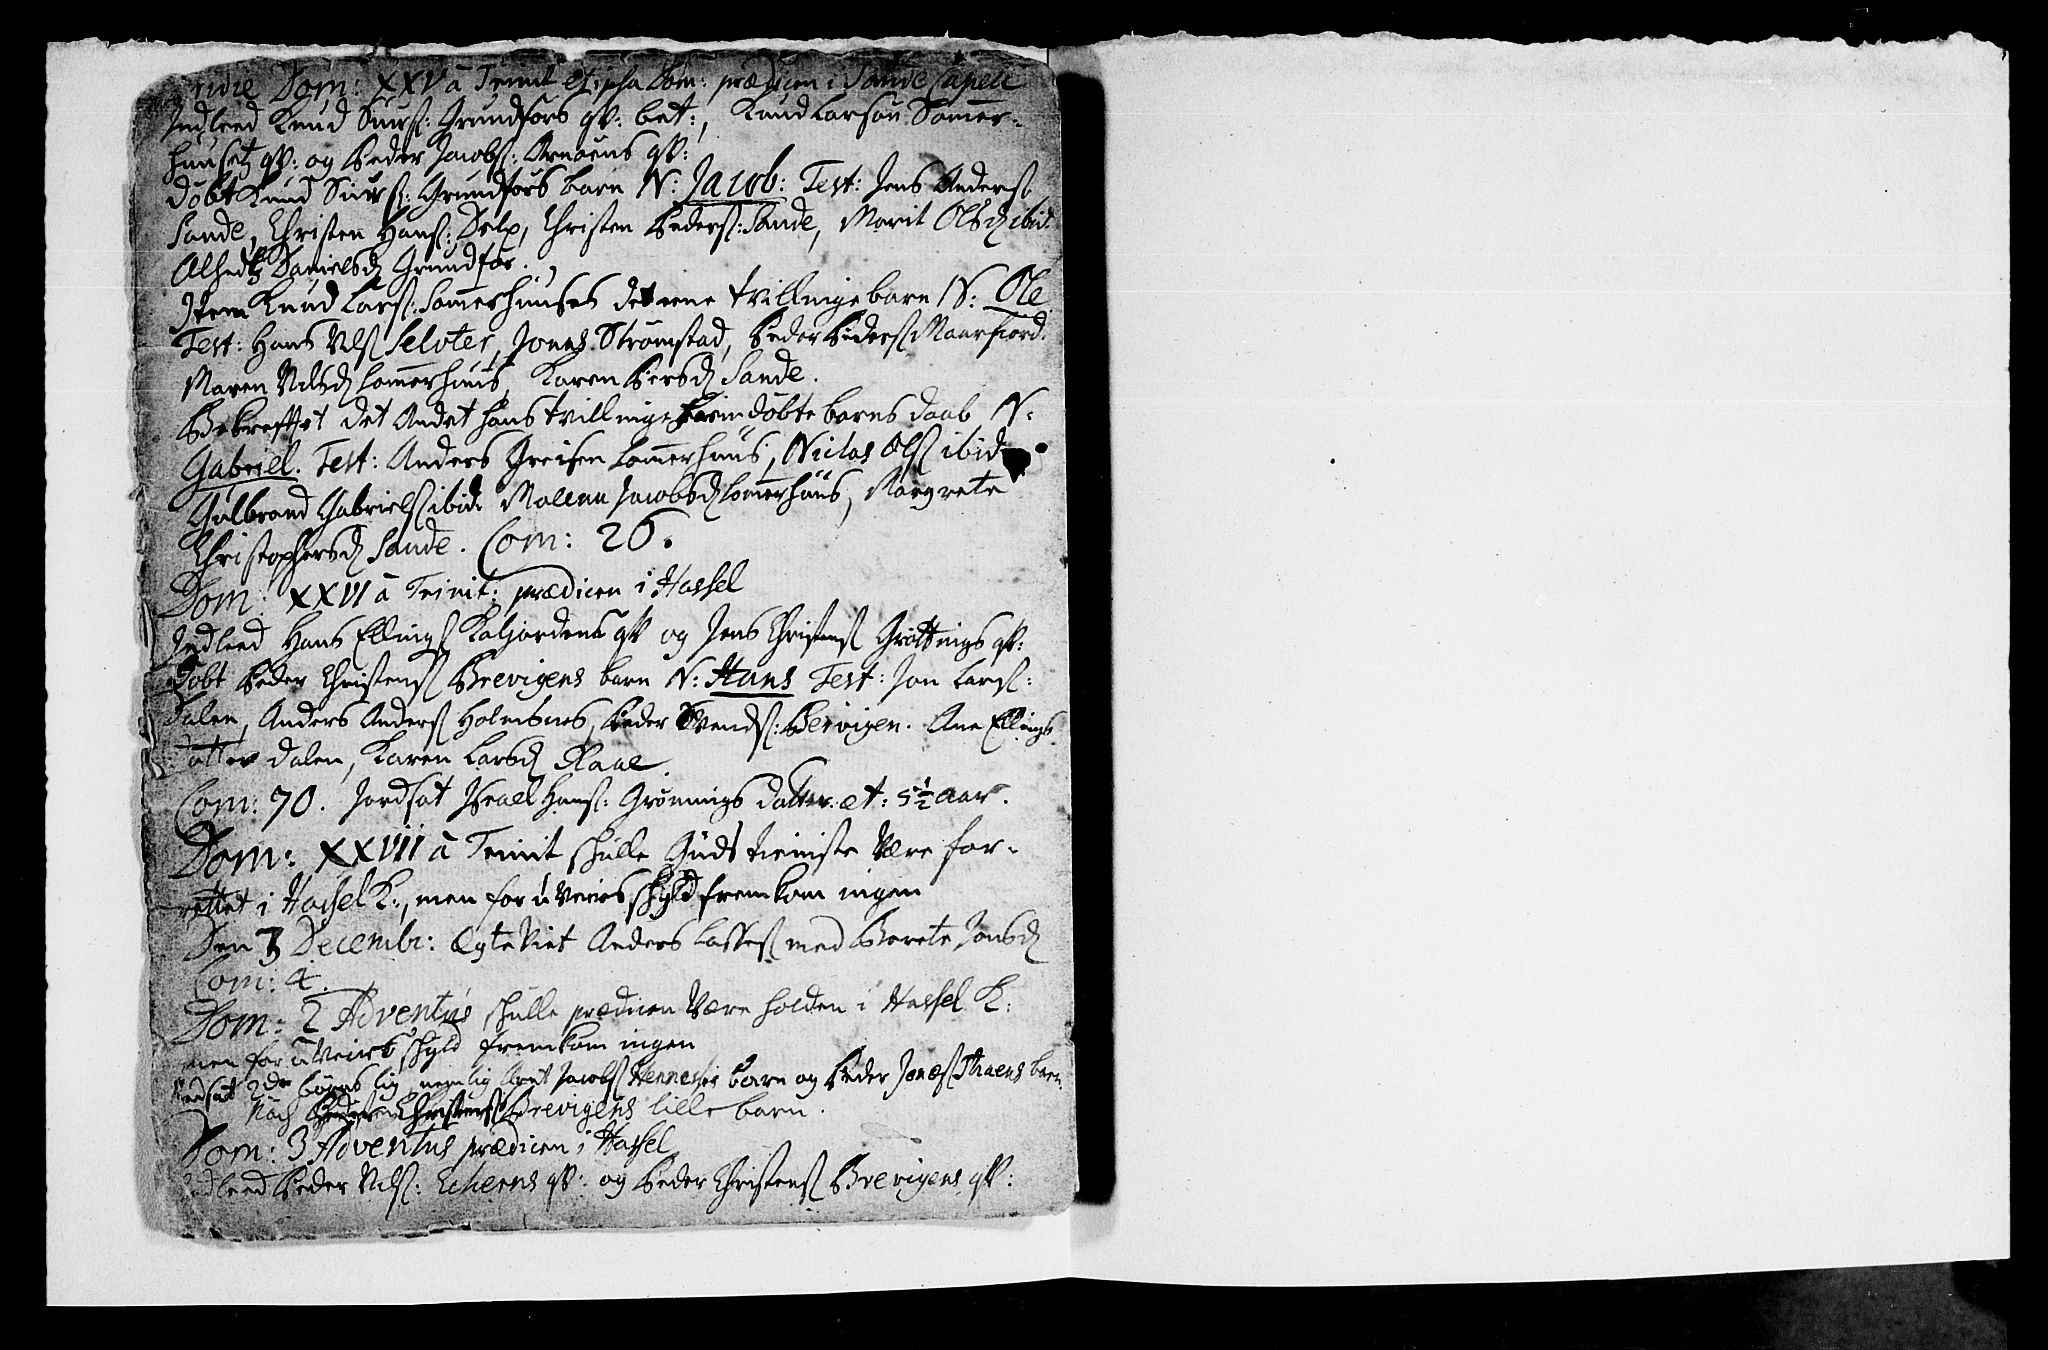 Pridie Dom: XXV à Trinit et ipsa Dom: prædicen i Sande Capell
Indleed Knud Siurs: Grundfors qv: bet:, Knud Larsøn Somer-
huusetz qv: og Peder Jacobs: Arnøens qv:
Døbt Knud Siurs: Grundfors barn N: Jacob: Test: Jens Anders:
Sande, Christen Hans: Delp, Christen Peders: Sande, Marit Olsd ibid:
Alhed Danielsd Grundfor.
Item Knud Lars: Somerhuuses det eene tvillinge barn N: Ole
Test: Hans Nls Selvter, Jonas Strømstad, Peder Peders Maarfiord.
Maren Nilsd Somerhuus, Karen Persd Sande.
Bekreftet det Andet hans tvilling-hiemdøbte barns daab N:
Gabriel. Test: Anders Greisen Somerhuus, Niclas Ols ibid
Gulbrand Gabriels ibid: Maleena Jacobsd Somerhuus, Margrete
Christophersd Sande. Com: 26.
Dom: XXVI à Trinit: prædicen i Hassel
Indleed Hans Ellings Kaljordens qv og Jens Christens Grøttnings qv:
Døbt Peder Christens Brevigens barn N: Hans Test: Jon Lars:
Dalen, Anders Anders Holmsnes, Peder Svends: Bervigen. Ane Ellings
datter Dalen, Karen Larsd
Com: 70. Jordsat Israel Hans: Grønnings datter. æt: 5 1/2 aar.
Dom: XXVII à Trinit skulle Guds tieniste være for-
rettet i Hassel K:, men for u-veirs skyld fremkom ingen
Den 3 Decembr: Ægteviet Anders Lasses med Berete Jonsd
Com: 4.
Dom: 2 Adventus skulle prædicen være holden i Hassel K:
men for u-veirs skyld fremkom ingen
Nedsat 2de børns lig, nemlig Arnt Jacobs Hennes barn og Peder Jonæs barn.
Noch Peder Christens Brevigens lille barn.
Dom: 3 Adventus prædicen i Hassel
Indleed Peder Nils: qv: og Peder Christens Brevigens qv: